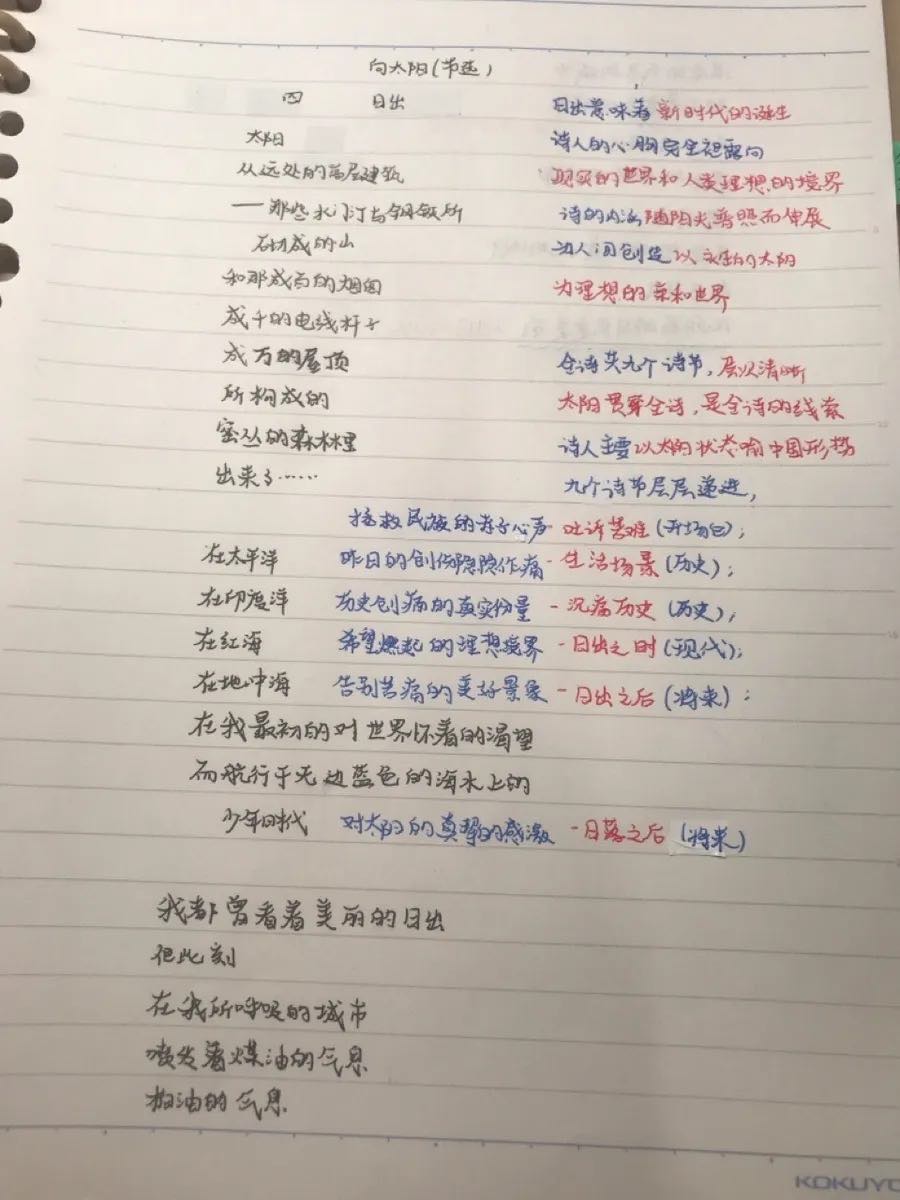 向太阳(节选)
四 日出 日出意味着新时代的诞生
太阳 诗人的心胸完全袒露向
从远处的高层建筑 现实的世界和人类理想的境界
——那些水门汀与钢铁所 诗的内涵随阳光普照而伸展
砌成的山 为人们创造以永生的太阳
和那成百的烟囱 为理想的亲和世界
成千的电线杆子
成万的屋顶 全诗共九个诗节，层次清晰
所构成的 太阳贯穿全诗，是全诗的线索
密丛的森林里 诗人主要以太阳状态喻中国形势
出来了…… 九个诗节层层递进，
拯救民族的赤子心声-吐诉苦难(开场白)；
在太平洋 昨日的创伤隐隐作痛-生活场景(历史)；
在印度洋 历史创痛的真实份量-沉痛历史(历史)；
在红海 希望燃起的理想境界-日出之时(现代)；
在地中海 告别苦痛的美好景象-日出之后(将来)：
在我最初的对世界怀着的渴望
而航行于无边蓝色的海水上的
少年时代 对太阳的真挚的感激-日落之后(将来)
我都曾看着美丽的日出
但此刻
在我所呼吸的城市
喷发着煤油的气息
柏油的气息
KOKUYO